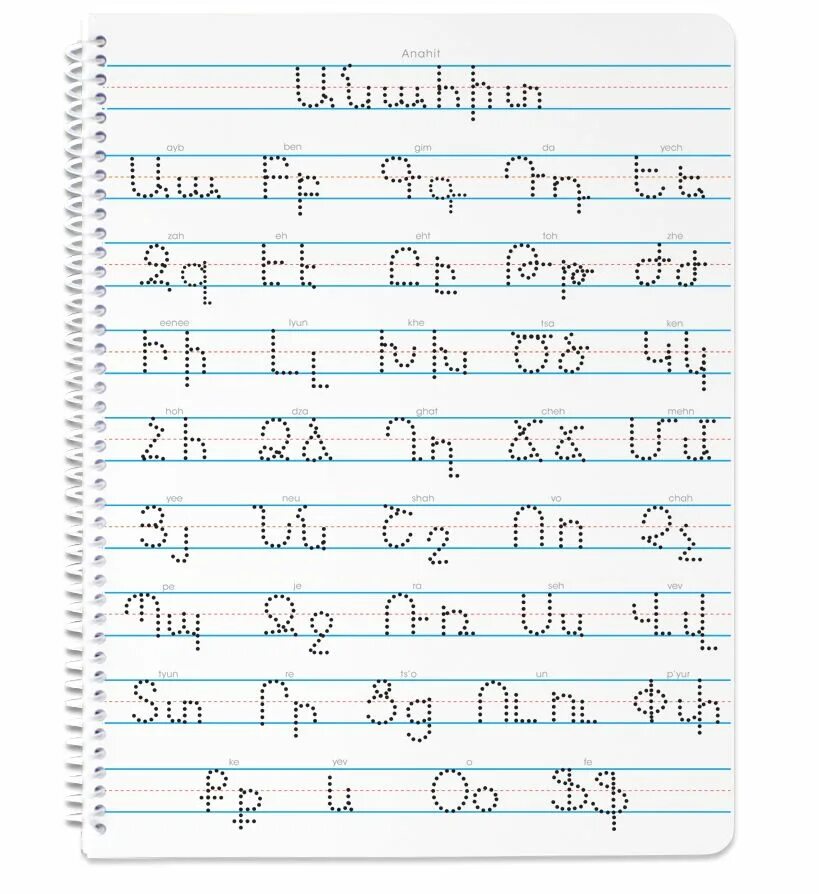 Anahit
Անահիտ
ayb ben gim da yech
Աա Բբ Գգ Դդ Եե
zah eh eht toh zhe
Զզ Էէ Ըը Թթ Ժժ
eenee lyun khe tsa ken
Իի Լլ Խխ Ծծ Կկ
hoh dza ghat cheh mehn
Հհ Ձձ Ղղ Ճճ Մմ
yee neu shah vo chah
Յյ Նն Շշ Ոո Չչ
pe je ra seh vev
Պպ Ջջ Ռռ Սս Վվ
tyun re ts'o un p'yur
Տտ Րր Ցց Ււու Փփ
ke yev o fe
Քք և Օօ Ֆֆ